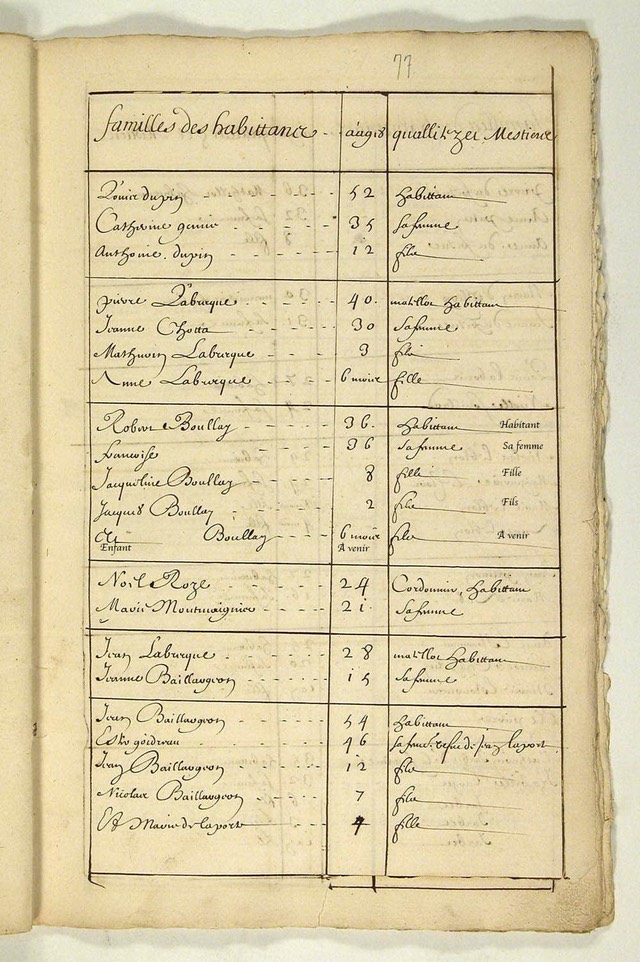 77
familles des habittans aages quallitez et Mestiers
Louis dupin 52 habittant
Catherine 35 sa femme
Anthoine dupin 12 filz
pierre Laburque 40. matellot habittant
Jeanne Chotta 30 sa femme
Mathurin Laburque 3 filz
Anne Laburque 6 mois fille
Robert Boullay 36. habittant Habitant
francoise 36 sa femme Sa femme
Jacqueline Boullay 8 fille Fille
Jacques Boullay 2 filz Fils
Boullay 6 mois filz A venir
Enfant A venir
Noël Roze 24 Cordonnier, habittant
Marie Montmaignier 21. sa femme
Jean Laburque 28 matellot habittant
Jeanne Baillargeon 15 sa femme
Jean Baillargeon 54 habittant
46 sa femme. vefve de Jean laport
Jean Baillargeon 12 filz
Nicolas Baillargeon 7 filz
Et Marie de laporte 4 fille